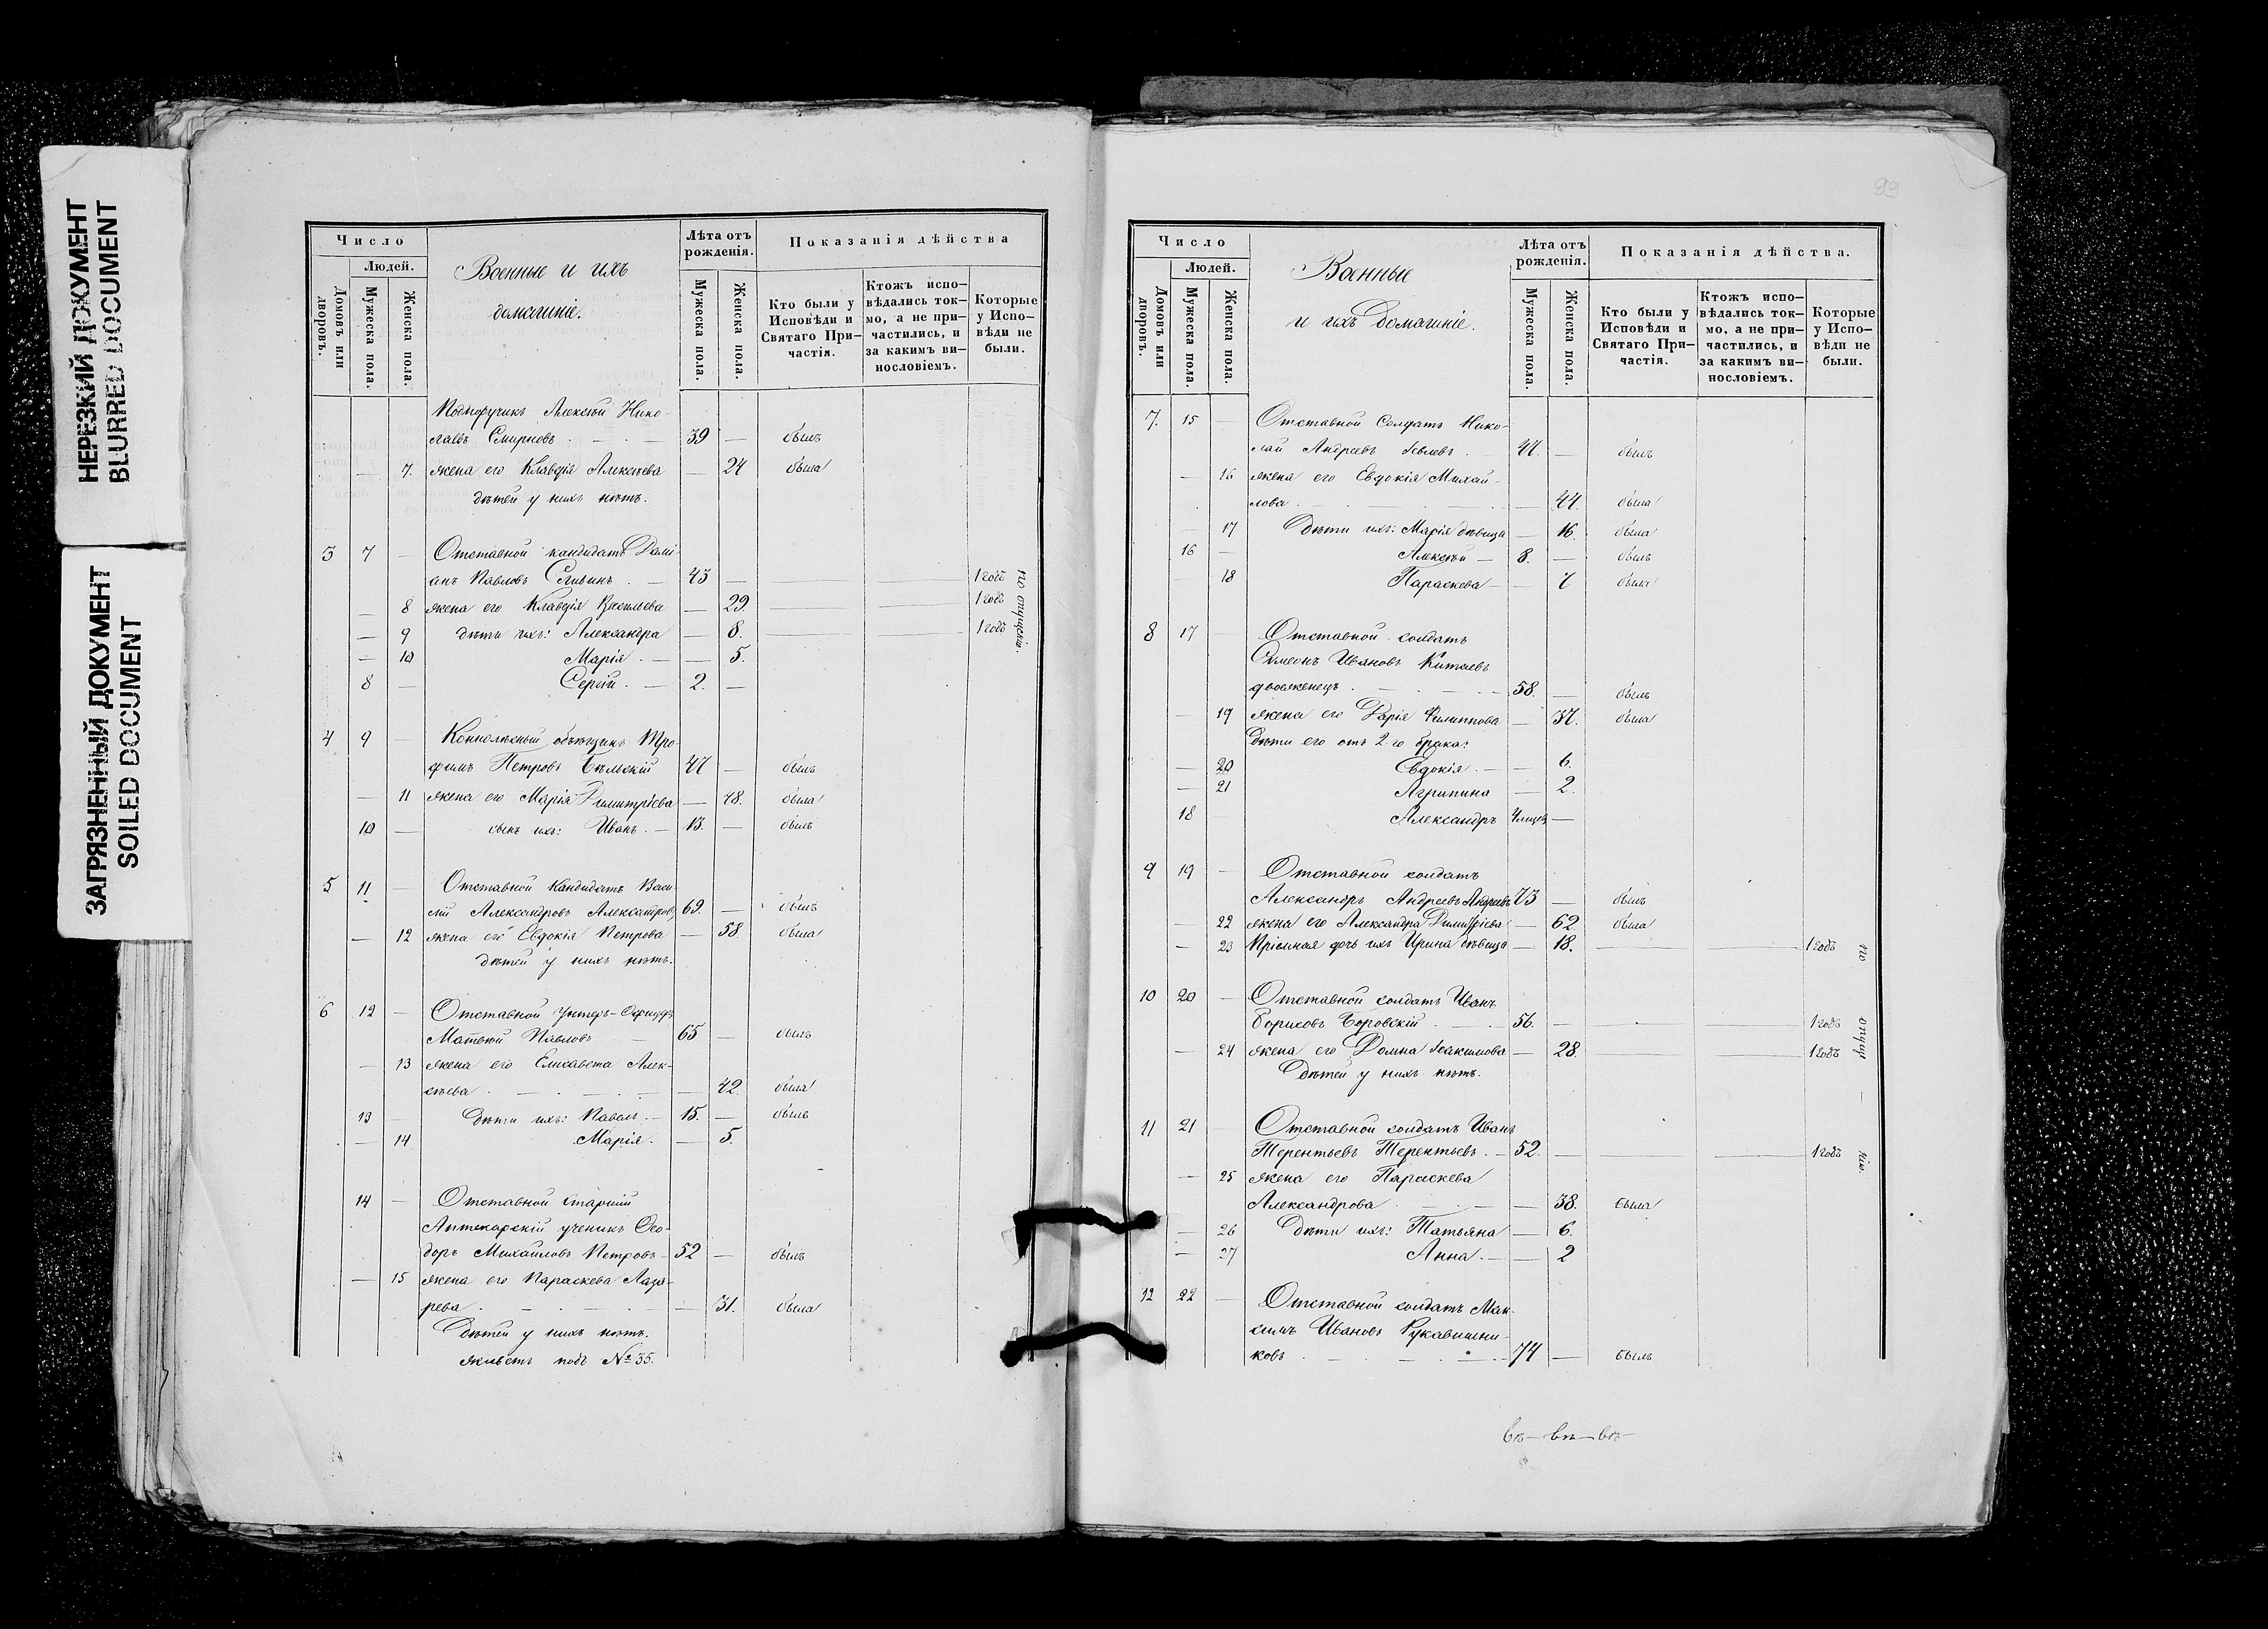 НЕРЕЗКИЙ ДОКУМЕНТ
BLURRED DOCUMENT
ЗАГРЯЗНЕННЫЙ ДОКУМЕНТ
SOILED DOCUMENT
Число
Людей.
Домовъ или дворовъ.
Мужеска пола.
Женска пола.
Военные и ихъ
домашніе.
Лѣта отъ рожденія.
Мужеска пола.
Женска пола.
Показанія дѣйства
Кто были у Исповѣди и Святаго Причастія.
Ктожъ исповѣдались токмо, а не причастились, и за какимъ винословіемъ.
Которые у Исповѣди не были.
Подпоручикъ Алексѣй Нико-
лаевъ Смирновъ 39 — былъ
— 7. жена его Клавдія Алексѣева — 24 была
дѣтей у нихъ нѣтъ.
3 7 — Отставной кандидатъ Дамі-
анъ Павловъ 43 — 1 годъ
— 8 жена его Клавдія Васильева — 29. 1 годъ
— 9 дѣти ихъ: Александра — 8. 1 годъ
по опущенію.
— 10 Марія — 5.
8 — Сергій 2. —
4 9 — объѣзчикъ Тро-
фимъ Петровъ Бѣльскій 47 — былъ
— 11 жена его Марія Димитріева — 48. была
10 — сынъ ихъ: Иванъ 13. — былъ
5 11 — Отставной Кандидатъ Васи-
лій Александровъ Александровъ 69. — былъ
— 12 жена его Евдокія Петрова — 58. была
дѣтей у нихъ нѣтъ.
6 12 — Отставной Унтеръ-Офицеръ
Матвѣй Павловъ 65 — былъ
— 13 жена его Елисавета Алек-
сѣева — 42. была
13 — Дѣти ихъ: Павелъ 15. — былъ
— 14 Марія. — 5.
14 — Отставной старшій
Аптекарскій ученикъ Ѳео-
доръ Михайловъ Петровъ 52 — былъ
— 15 жена его Параскева Лаза-
рева — 31. была
Дѣтей у нихъ нѣтъ.
живетъ подъ № 35.
99
Число
Людей.
Домовъ или дворовъ.
Мужеска пола.
Женска пола.
Военные
и ихъ домашніе.
Лѣта отъ рожденія.
Мужеска пола.
Женска пола.
Показанія дѣйства.
Кто были у Исповѣди и Святаго Причастія.
Ктожъ исповѣдались токмо, а не причастились, и за какимъ винословіемъ.
Которые у Исповѣди не были.
7. 15 — Отставной Солдатъ Нико-
лай Андреевъ 44. — былъ
— 16 жена его Евдокія Михай-
лова — 44. была
— 17 Дѣти ихъ: Марія дѣвица — 16. была
16 — Алексѣй 8. — былъ
18 Параскева — 7 была
8 17 Отставной солдатъ
Симеонъ Ивановъ Китаевъ
двоеженецъ 58. — былъ
— 19 жена его Дарія Филиппова — 37. была
Дѣти его отъ 2-го брака:
— 20 Евдокія — 6.
— 21 Агрипина — 2.
18 Александръ —
9 19 — Отставной солдатъ
Александръ Андреевъ Андреевъ 73 — былъ
— 22 жена его Александра Димитріева — 62. была
— 23 Пріемная дочь ихъ Ирина дѣвица — 18. 1 годъ
10 20 — Отставной солдатъ Иванъ
Борисовъ Боровскій 56. — 1 годъ
— 24 жена его Домна Іоакимова — 28. 1 годъ
Дѣтей у нихъ нѣтъ.
11 21 — Отставной солдатъ Иванъ
Терентьевъ Терентьевъ 52. — 1 годъ
по опуще — нію.
— 25 жена его Параскева
Александрова — 38. была
— 26 Дѣти ихъ: Татьяна — 6.
— 27 Анна — 2
12 22 — Отставной солдатъ Мак-
симъ Ивановъ Рукавишни-
ковъ 74 — былъ